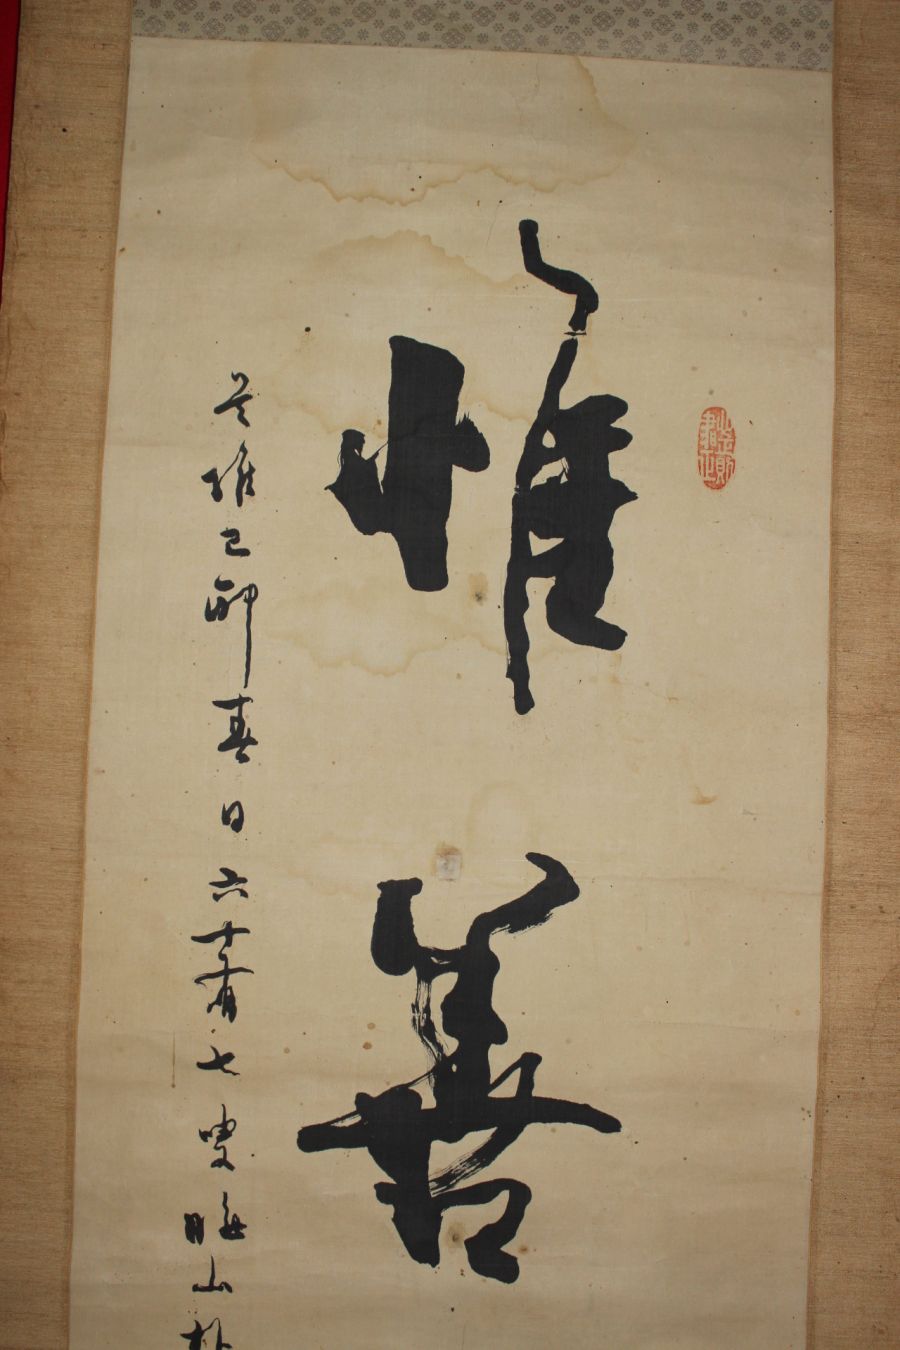 惟善
維己卯春日六十有七叟晦山朴